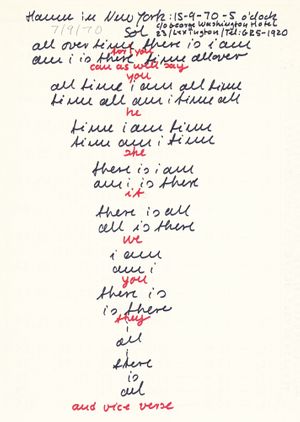 Hanne in New York: 15-9-70-5 o'clock
7/9/70 Sol c/o George Washington Hotel
23/Lexington/Tel: GR5-1920
all over time there is i am
for you
am i is there time all over
can as well say
you
all time i am all time
time all am i time all
he
time i am time
time am i time
she
there is i am
am i is there
it
there is all
all is there
we
i am
am i
you
there is
is there
they
i
all
i
there
is
all
and vice verse